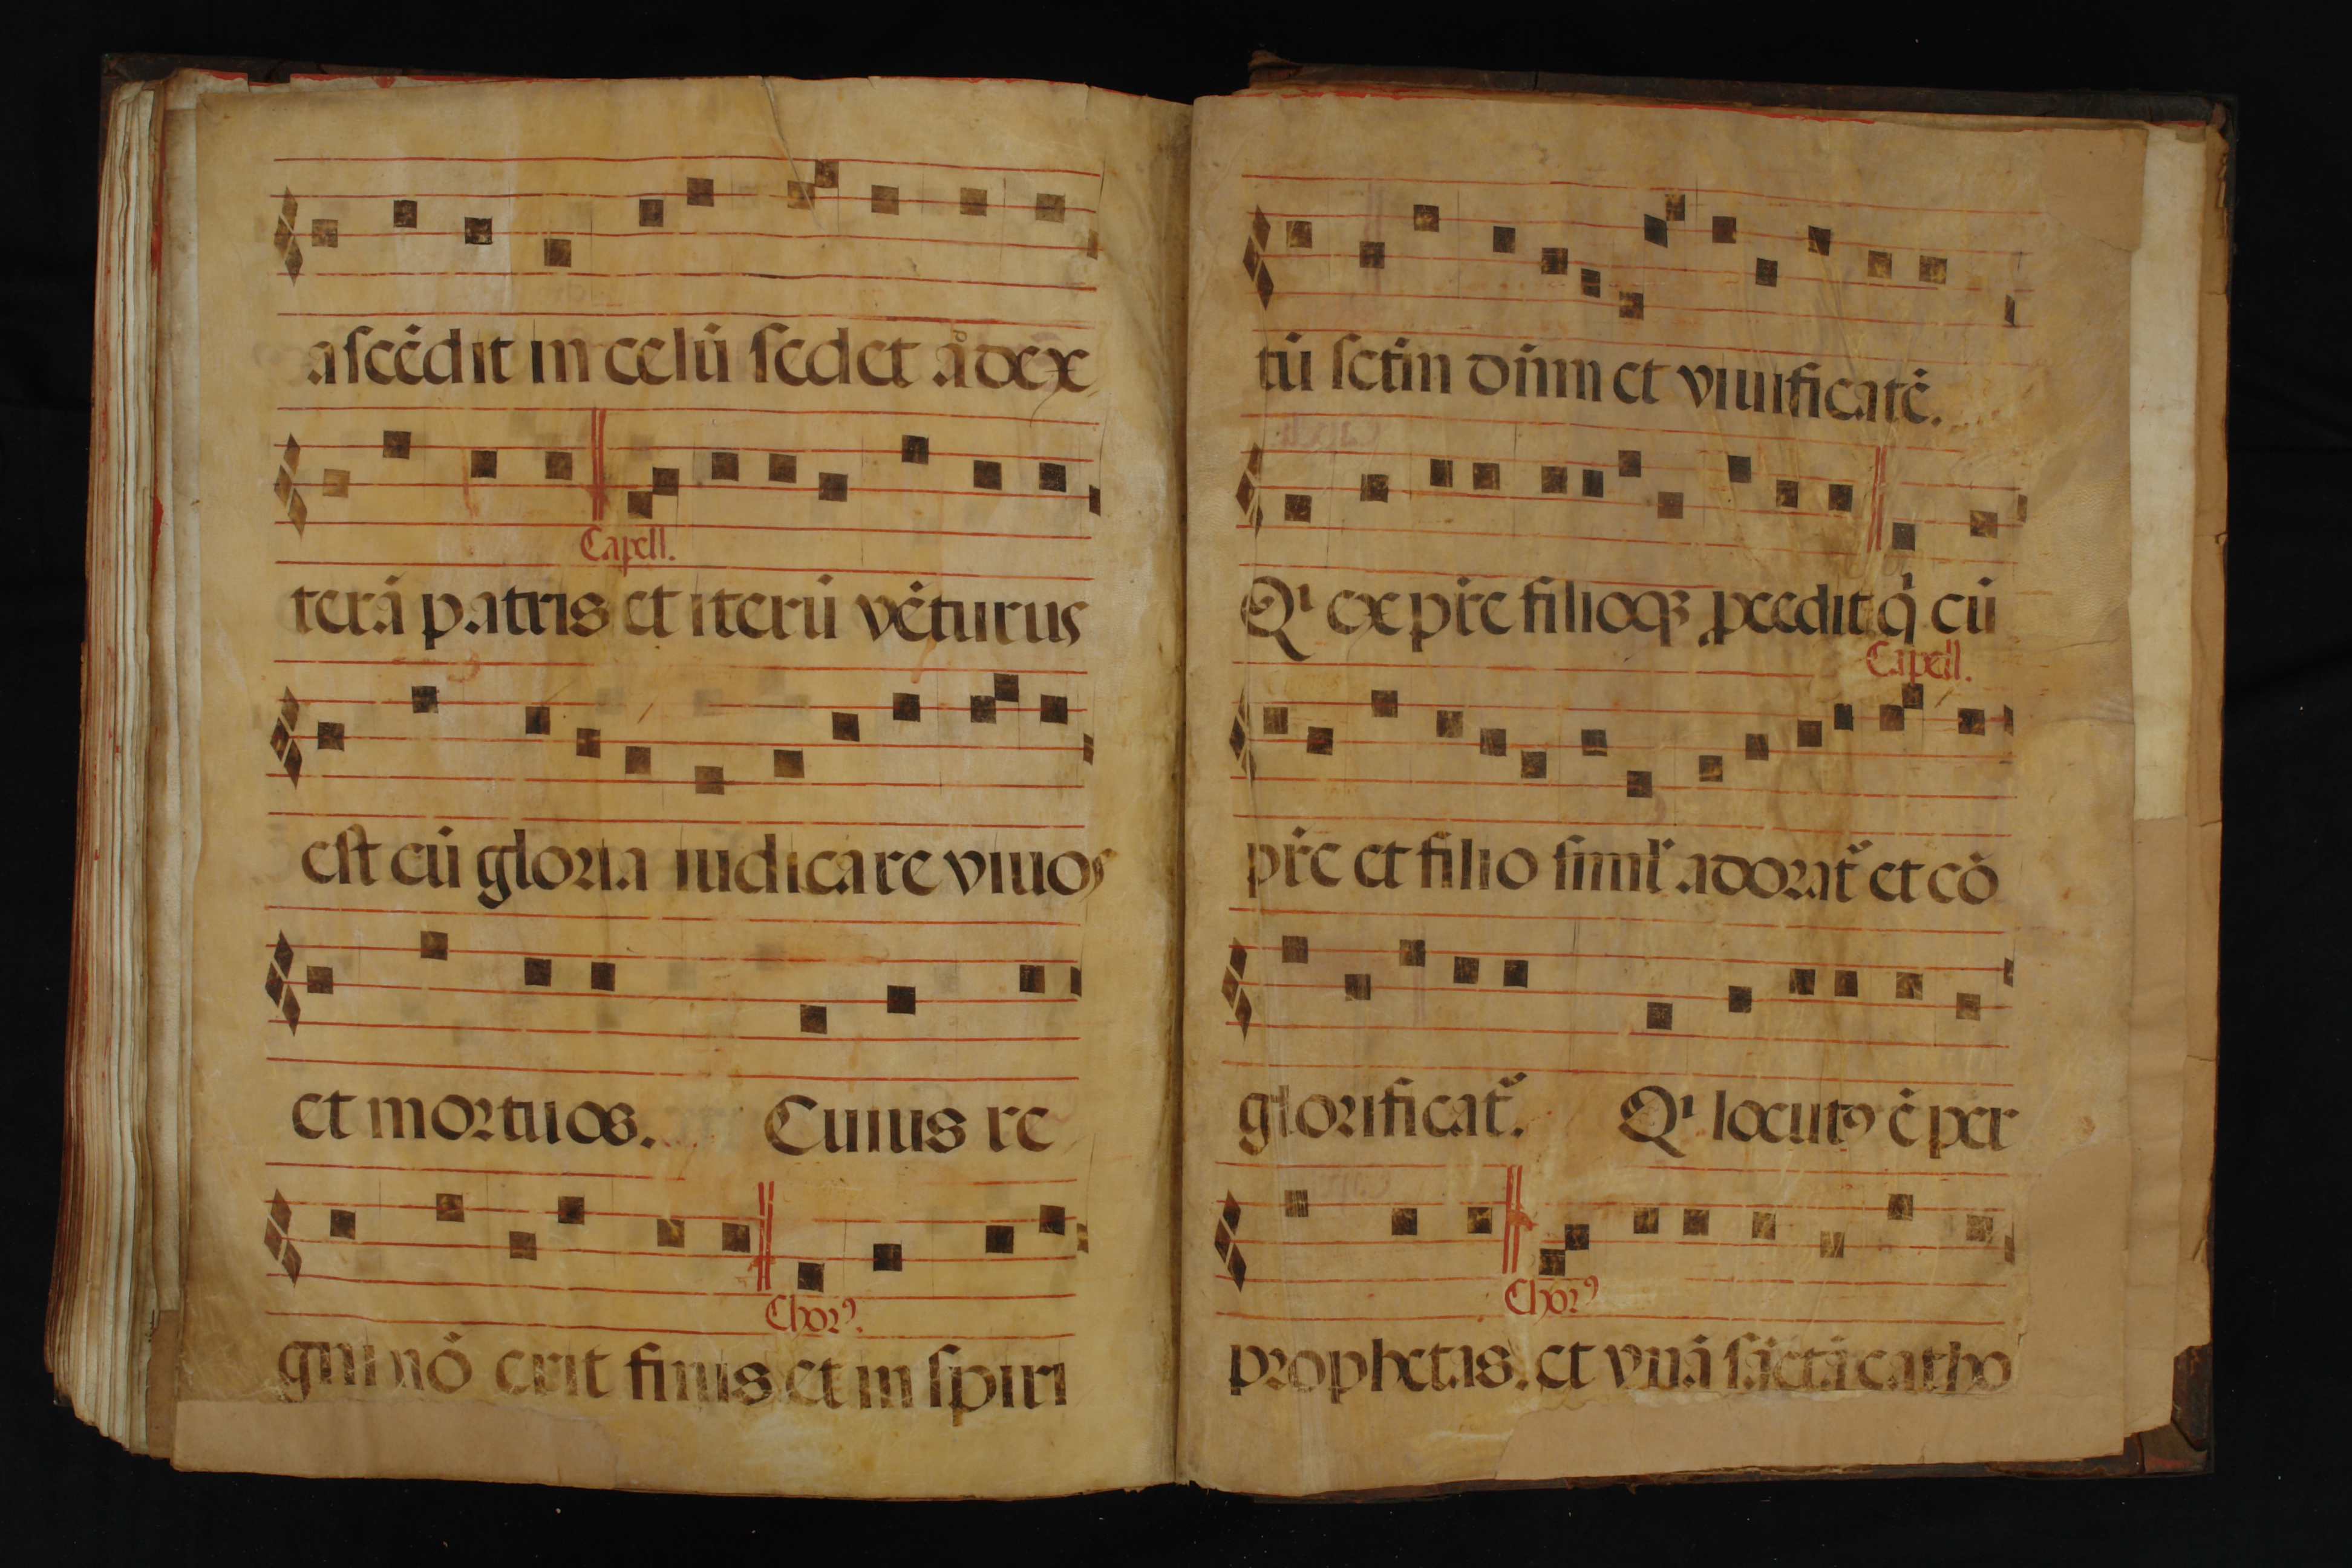 ascēdit in celū sedet ad dex
Capell.
terā patris et iterū vēturus
est cū gloria iudicare viuos
et mortuos. Cuius re
Chorꝰ.
gni nō erit finis et in spiri
tū sctm dnm et viuificatē.
Qi ex pr̄e filioqꝫ ꝓcedit q̇ cū
Capell.
pr̄e et filio simil̄ adorat᷑ et cō
glorificat᷑. Qi locutꝰ ē per
Chorꝰ
prophetas. et vnā sāctā catho